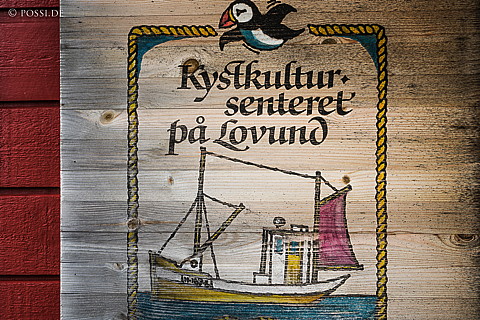 © POSSI.DE
Kystkultur-
senteret
på Lovund